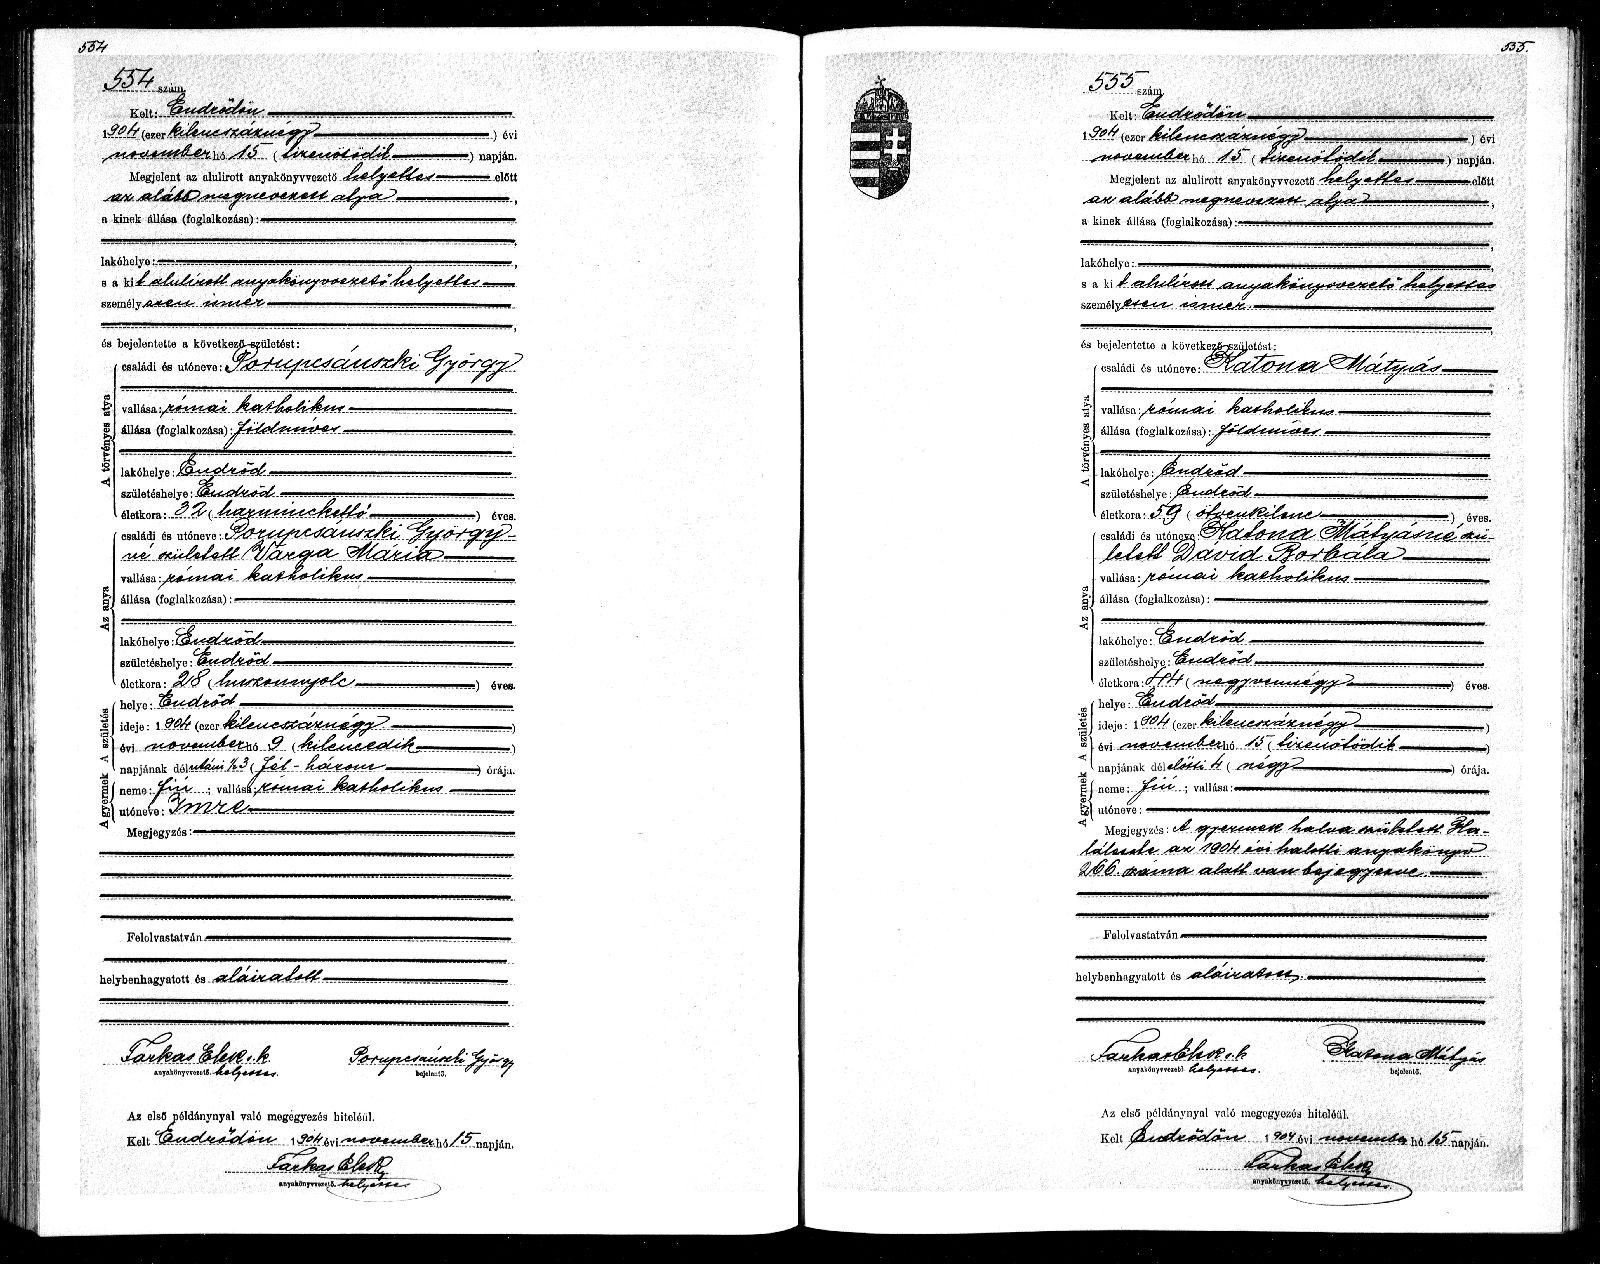 554
554 szám.
Kelt: Endrődön
1904 (ezer kilencszáznégy) évi
november hó 15 (tizenötödik) napján.
Megjelent az alulirott anyakönyvvezető helyettes előtt
az alább megnevezett atya,
a kinek állása (foglalkozása):
lakóhelye:
s a kit alulirott anyakönyvvezető helyettes
személyesen ismer
és bejelentette a következő születést:
A törvényes atya
családi és utóneve: Porupcsánszki György
vallása: római katholikus
állása (foglalkozása): földmíves
lakóhelye: Endrőd
születéshelye: Endrőd
életkora: 32 (harminckettő) éves.
Az anya
családi és utóneve: Porupcsánszki György-
né született Varga Mária
vallása: római katholikus
állása (foglalkozása):
lakóhelye: Endrőd
születéshelye: Endrőd
életkora: 28 (huszonnyolc) éves.
A születés
helye: Endrőd
ideje: 1904 (ezer kilencszáznégy)
évi november hó 9 (kilencedik)
napjának délutáni ½3 (fél-három) órája.
A gyermek
neme: fiú; vallása: római katholikus
utóneve: Imre
Megjegyzés:
Felolvastatván
helybenhagyatott és aláiratott
Farkas Elek s. k. Porupcsánszki György
anyakönyvvezető. helyettes. bejelentő.
Az első példánynyal való megegyezés hiteléül.
Kelt Endrődön 1904 évi november hó 15 napján.
Farkas Elek
anyakönyvvezető. helyettes
555.
555 szám
Kelt: Endrődön
1904 (ezer kilencszáznégy) évi
november hó 15 (tizenötödik) napján.
Megjelent az alulirott anyakönyvvezető helyettes előtt
az alább megnevezett atya,
a kinek állása (foglalkozása):
lakóhelye:
s a kit alulirott anyakönyvvezető helyettes
személyesen ismer
és bejelentette a következő születést:
A törvényes atya
családi és utóneve: Katona Mátyás
vallása: római katholikus
állása (foglalkozása): földmíves
lakóhelye: Endrőd
születéshelye: Endrőd
életkora: 59 (ötvenkilenc) éves.
Az anya
családi és utóneve: Katona Mátyásné szü-
letett Dávid Borbála
vallása: római katholikus
állása (foglalkozása):
lakóhelye: Endrőd
születéshelye: Endrőd
életkora: 44 (negyvennégy) éves.
A születés
helye: Endrőd
ideje: 1904 (ezer kilencszáznégy)
évi november hó 15 (tizenötödik)
napjának délelőtti 4 (négy) órája.
A gyermek
neme: fiú; vallása:
utóneve:
Megjegyzés: A gyermek halva született. Ha-
lálesete az 1904 évi halotti anyakönyv
266. száma alatt van bejegyezve.
Felolvastatván
helybenhagyatott és aláiratott.
Farkas Elek s. k. Katona Mátyás
anyakönyvvezető helyettes. bejelentő.
Az első példánynyal való megegyezés hiteléül.
Kelt Endrődön 1904 évi november hó 15 napján.
Farkas Elek
anyakönyvvezető. helyettes.